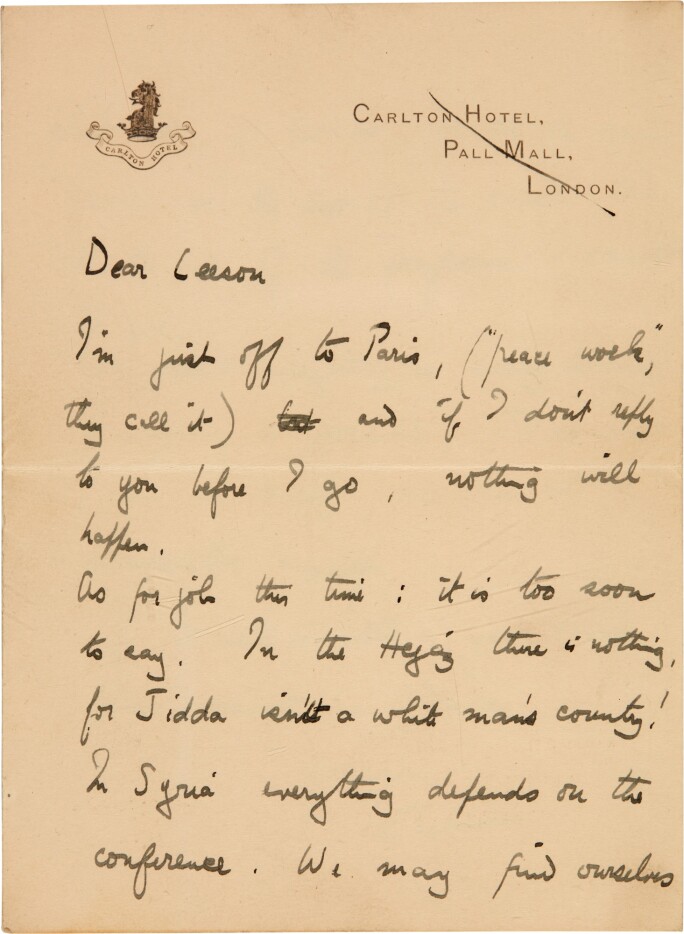 CARLTON HOTEL
CARLTON HOTEL,
PALL MALL,
LONDON.
Dear Leeson
I'm just off to Paris, ("peace work",
they call it) and if I don't reply
to you before I go, nothing will
happen.
As for job this time: it is too soon
to say. In the Hejaz there is nothing,
for Jidda isn't a white man's country!
In Syria everything depends on the
conference. We may find ourselves